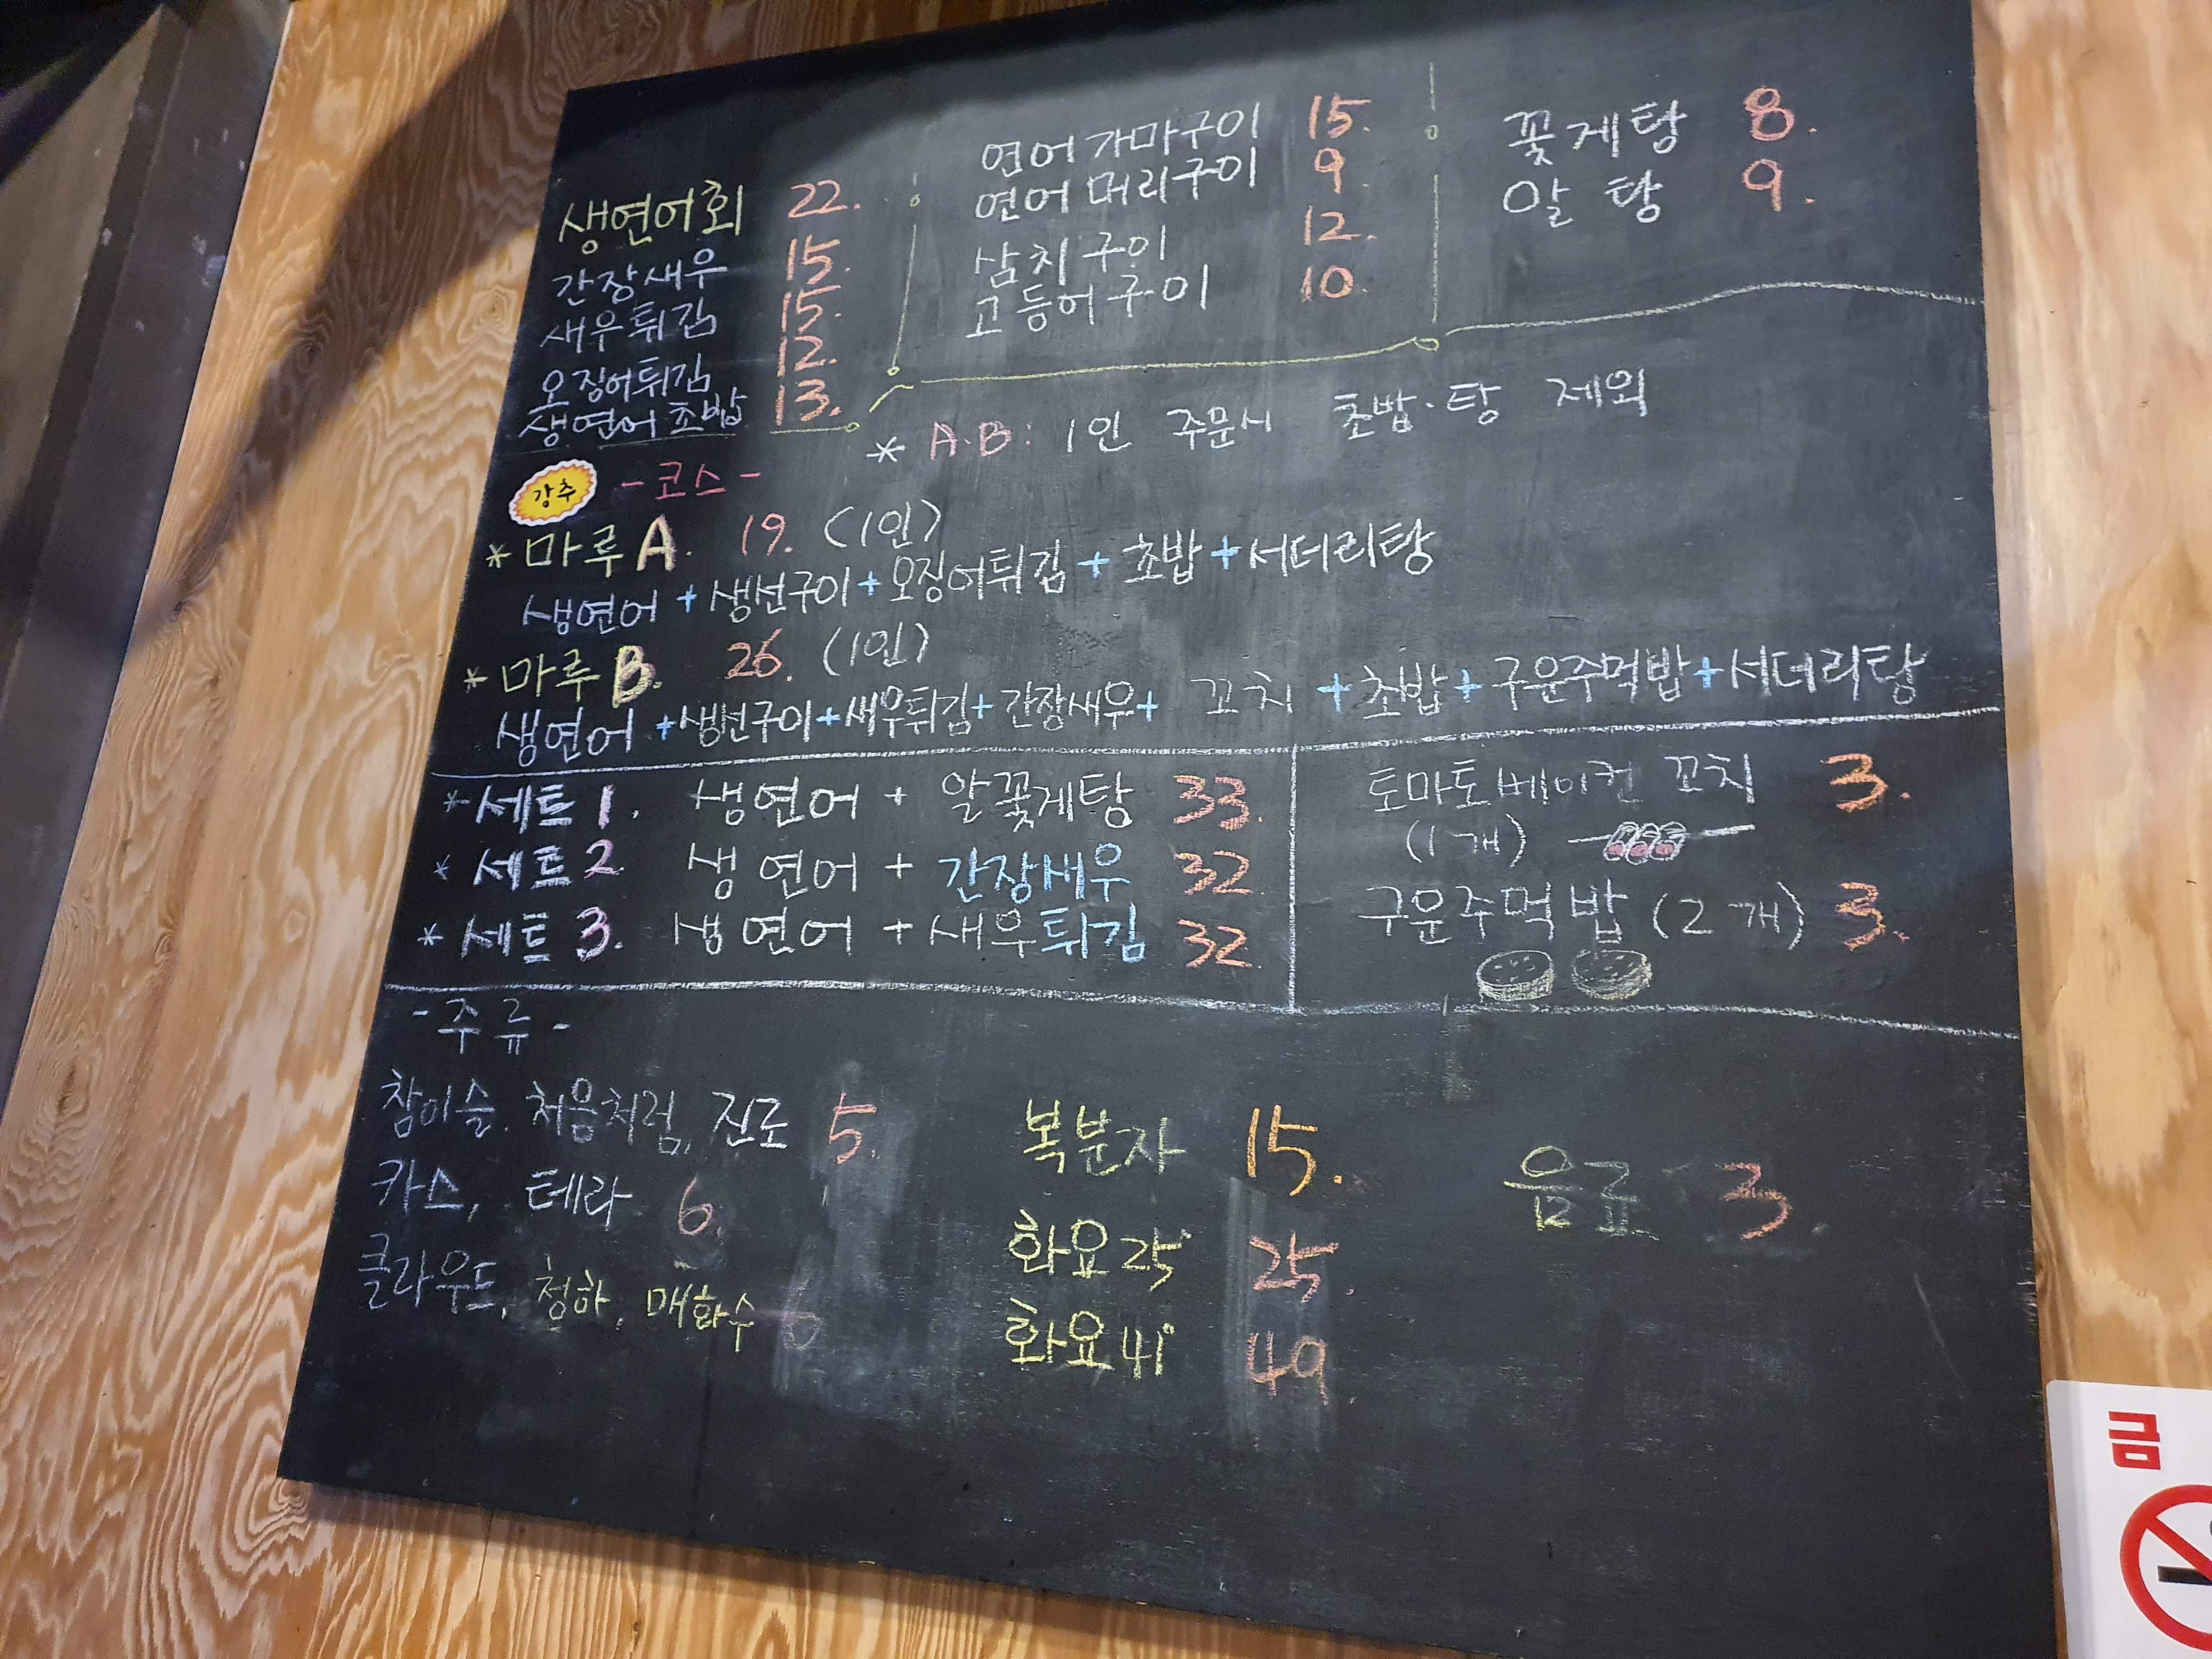 생연어회 22.
간장새우 15.
새우튀김 15.
오징어튀김 12.
생연어초밥 13.
연어가마구이 15.
연어머리구이 9.
삼치구이 12.
고등어구이 10.
꽃게탕 8.
알탕 9.
* A.B: 1인 주문시 초밥·탕 제외
강추 -코스-
* 마루 A. 19. (1인)
생연어 + 생선구이 + 오징어튀김 + 초밥 + 서더리탕
* 마루 B. 26. (1인)
생연어 + 생선구이 + 새우튀김 + 간장새우 + 꼬치 + 초밥 + 구운주먹밥 + 서더리탕
* 세트 1. 생연어 + 알꽃게탕 33.
* 세트 2. 생연어 + 간장새우 32.
* 세트 3. 생연어 + 새우튀김 32.
토마토베이컨 꼬치 3.
(1개)
구운주먹밥 (2개) 3.
- 주류 -
참이슬. 처음처럼, 진로 5.
카스, 테라 6.
클라우드, 청하, 매화수 6
복분자 15.
화요 25° 25.
화요 41° 49.
음료 3.
금